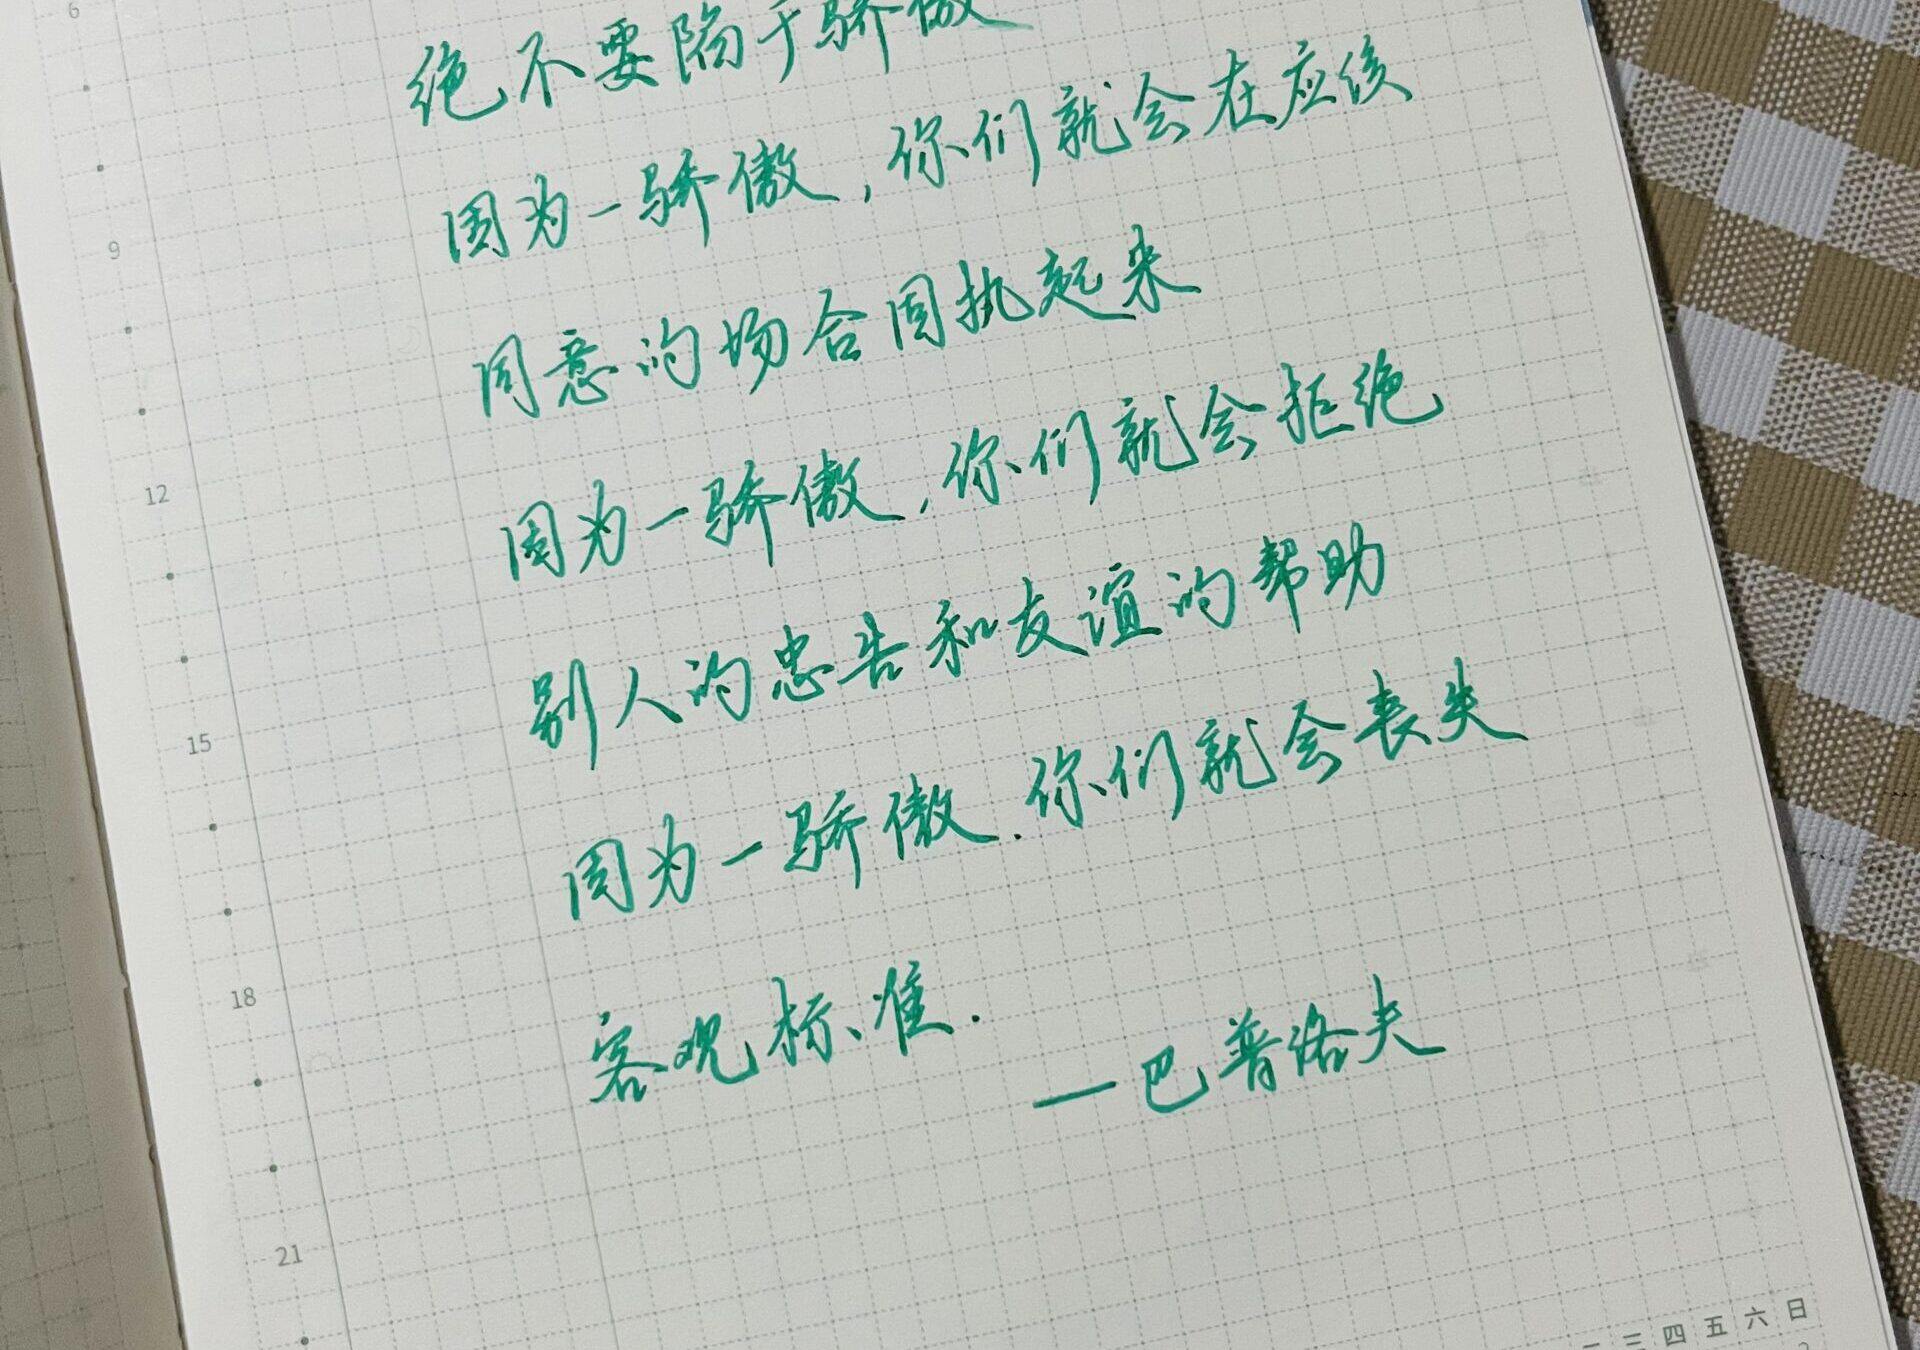 6
绝不要陷于骄傲
因为一骄傲，你们就会在应该
9
同意的场合固执起来
12
因为一骄傲，你们就会拒绝
别人的忠告和友谊的帮助
15
因为一骄傲.你们就会丧失
18
客观标准.
—巴普洛夫
21
三四五六日